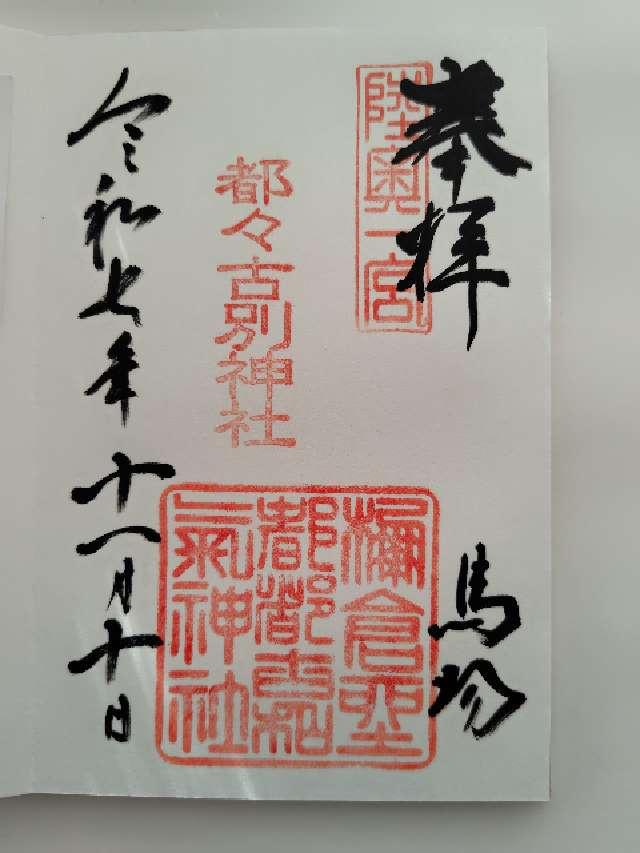 奉拝
陸奥一宮
馬場
都々古別神社
棚倉
都都古和
氣神社
令和七年十一月十日